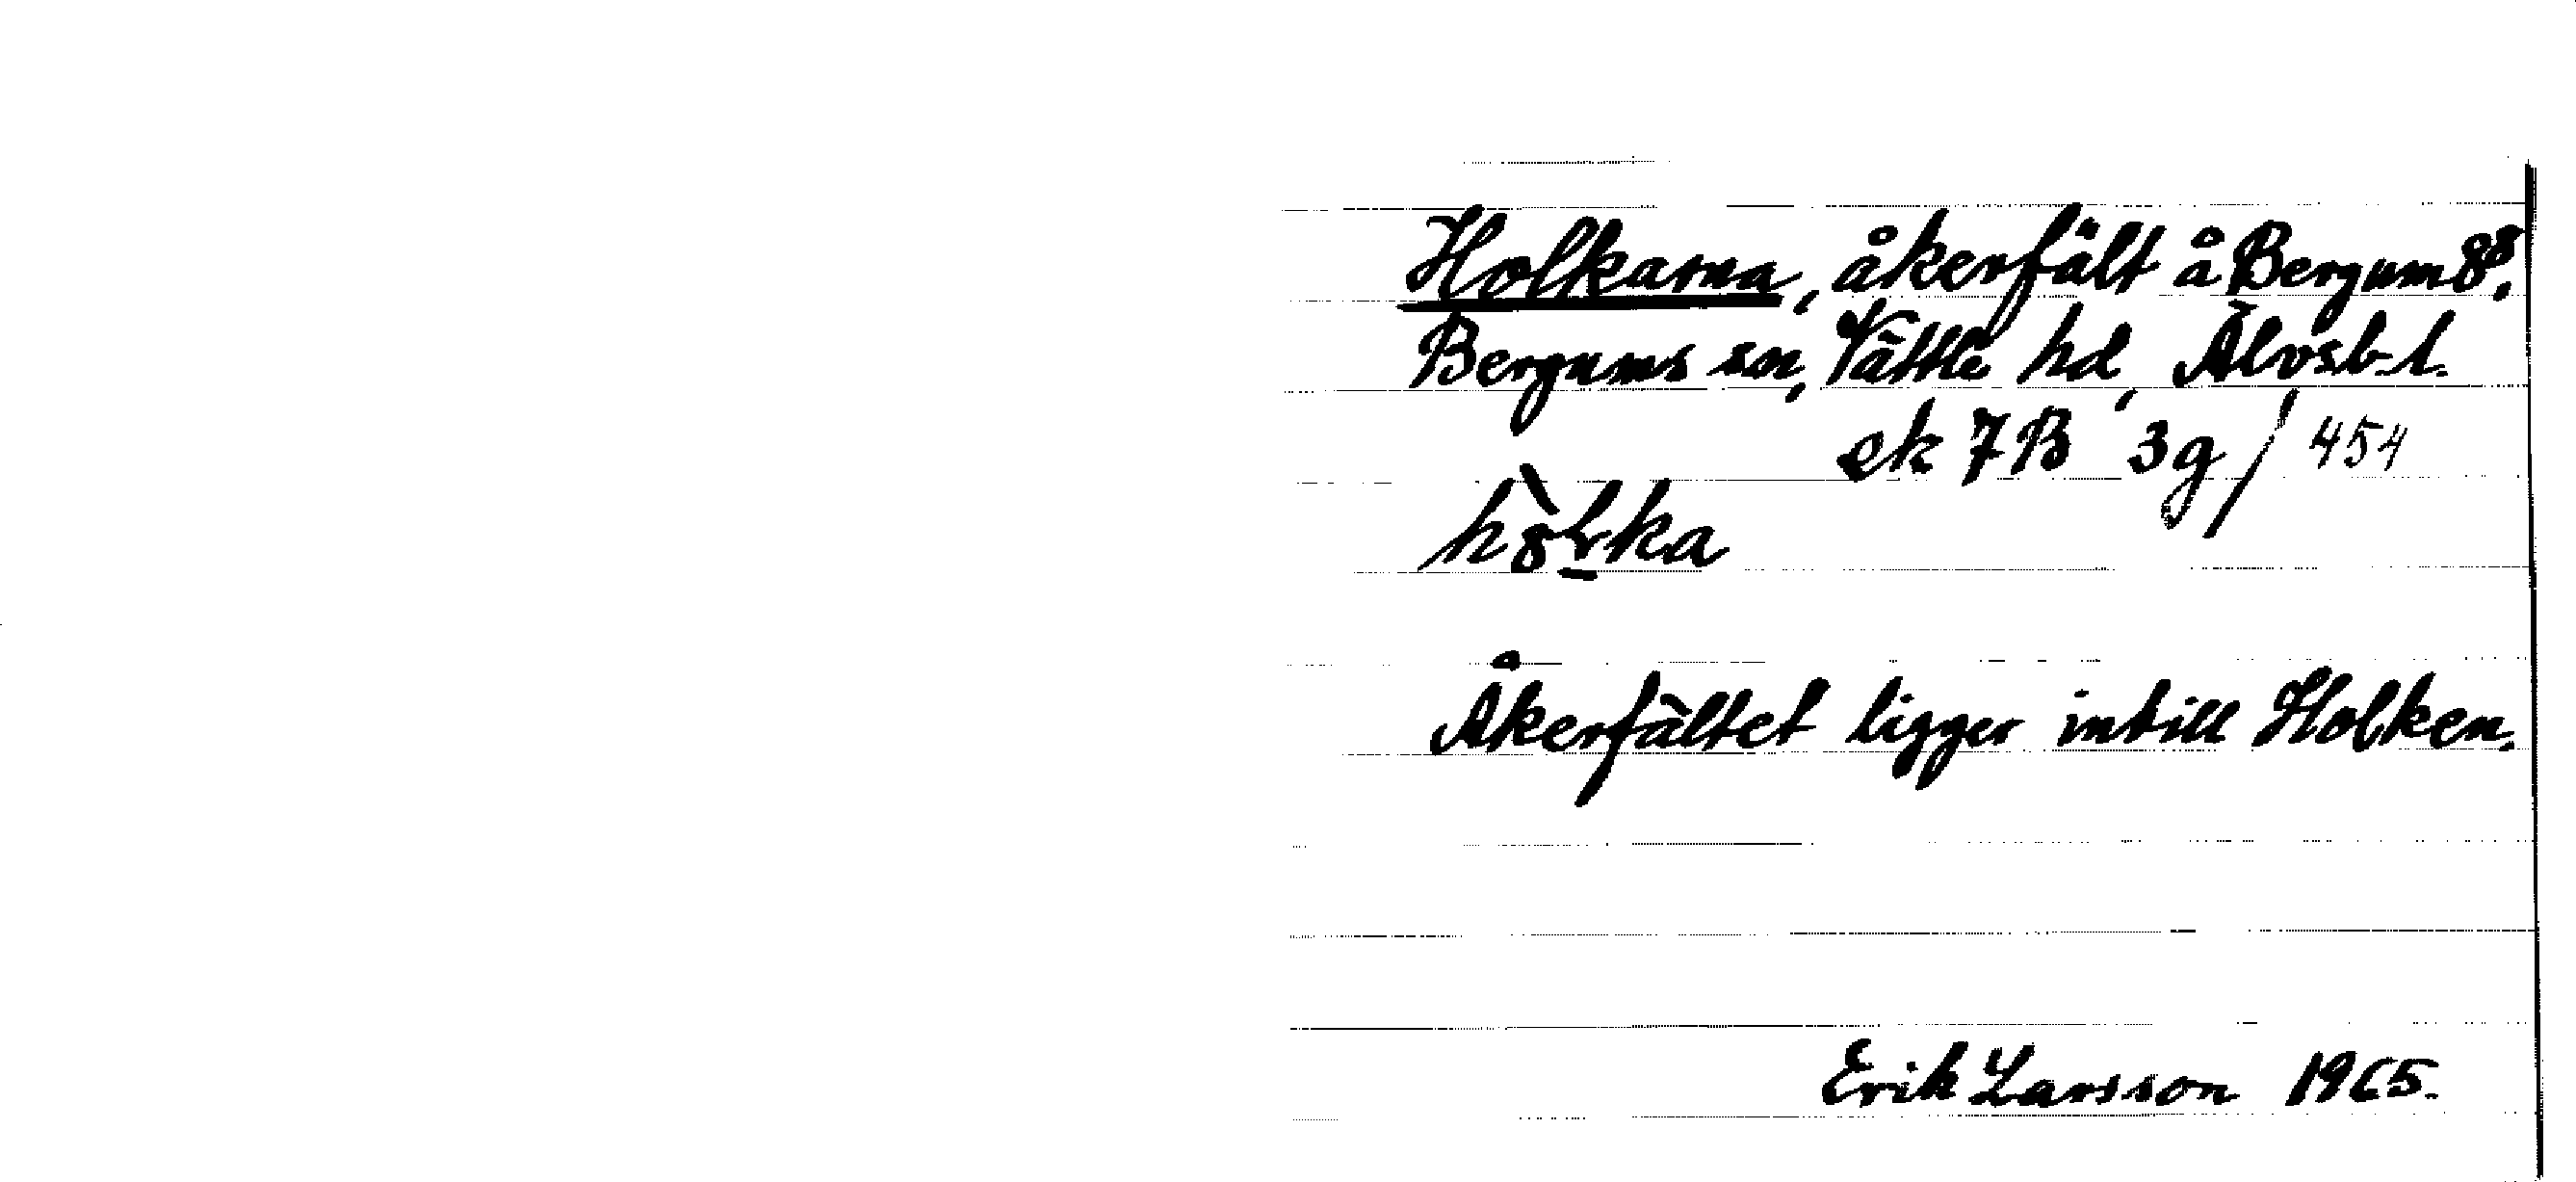 Holkarna, åkerfält å Bergum 8⁸.
Bergums sn, Vättle hd, Älvsb. l.
ek 7B 3g / 454
Åkerfältet ligger intill Holken.
Erik Larsson 1965.